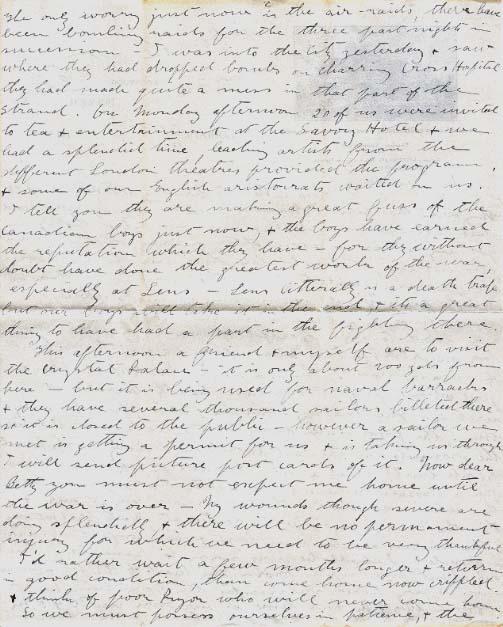 The only worry just now is the air-raids, there have
been bombing raids for the three past nights in
succession I was into the city yesterday & saw
where they had dropped bombs on Charring Cross Hospital
they had made quite a mess in that part of the
Strand. On Monday afternoon 20 of us were invited
to tea & entertainment at the Savoy Hotel & we
had a splendid time, leading artists from the
different London theatres provided the program.
& some of our English aristocrats waited on us.
I tell you they are making a great fuss of the
Canadian boys just now, & the boys have earned
the reputation which they have - for they without
doubt have done the greatest work of the war
especially at Lens - Lens litterally is a death trap
but our boys will take it in the end & its a great
thing to have had a part in the fighting there
This afternoon a friend & myself are to visit
the Crystal Palace - it is only about 200 yds from
here - but it is being used for naval barracks
& they have several thousand sailors billeted there
so it is closed to the public - however a sailor we
met is getting a permit for us & is taking us through
I will send picture post cards of it. Now dear
Betty you must not expect me home until
the war is over - My wounds though severe are
doing splendidly & there will be no permament
injury for which we need to be very thankful
I'd rather wait a few months longer & return
in good condition, than come home now crippled
& think of poor who will never come home
So we must possess ourselves in patience, & the